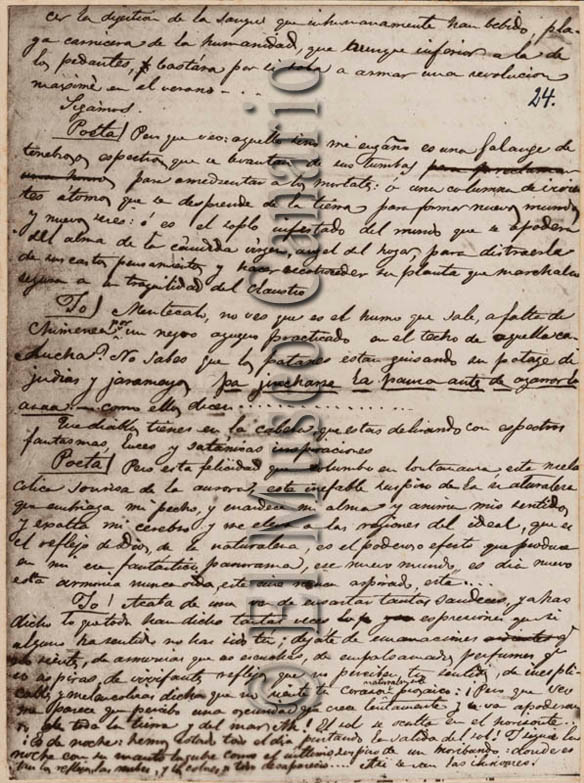 cer la digestion de la sangre que inhumanamente han bebido, pla-
ga carnicera de la humanidad, que aunque inferior a la de
los pedantes, bastára por si sola a armar una revolucion
maxime en el verano....
24.
Sigamos.
Poeta) Pero que veo: aquello sino me engaño es una falange de
tenebrosos espectros que se levantan de sus tumbas
para amedrentar a los mortales: ó una columna de
tes atomos que se desprende de la tierra para formar nuevos mundos
y nuevos seres: ó es el soplo infestado del mundo que se apodera
del alma de la cándida virgen, angel del hogar, para distraerla
de sus castos pensamientos y hacer retroceder su planta que marchaba
segura a la tranquilidad del claustro
Yo) Mentecato, no ves que es el humo que sale, a falta de
chimenea por un negro agugero practicado en el techo de aquella ca-
chucha? No sabes que los patanes estan guisando su potage de
judias y jaramagos pa jincharse la panza ante de
como ellos dicen..............
Que diablo tienes en la cabeza, que estas delirando con espectros
fantasmas, luces y satánicas inspiraciones
Poeta) Pero esta felicidad que columbro en lontananza esta melan
colica sonrisa de la aurora, este inefable suspiro de la naturaleza
que embriaga mi pecho, y enardece mi alma y anima mis sentidos
y exalta mi cerebro y me eleva a las regiones del ideal, que es
el reflejo de Dios, de la naturaleza, es el poderoso efecto que produce
en mi este fantastico panorama, ese nuevo mundo, es dia nuevo
esta armonia nunca oida, este aire nunca aspirado, este....
Yo) Acaba de una vez de ensartar tantas sandeces, ya has
dicho lo que todos han dicho tantas veces espresiones que si
alguno ha sentido no has sido tu: dejate de emanaciones que
no sientes, de armonias que no escuchas, de embalsamados perfumes que
no aspiras, de reflejos que no perciben tus sentidos, de inespli-
cable y melancolicas dichas que no siente tu corazon prosaico: ¡Pero que veo
me parece que percibo una oscuridad que crece lentamente y se va apoderan
do de toda la tierra y del mar; Ah! El sol se oculta en el horizonte...
¡Es de noche: hemos estado todo el dia pintando la salida del sol! Y sigue la
noche con su manto lugubre como el ultimo suspiro de un moribundo: donde es
tan los reflejos, las nubes, y los colores, todo desaparecio... Asi se van las ilusiones!
© El Museo Canario